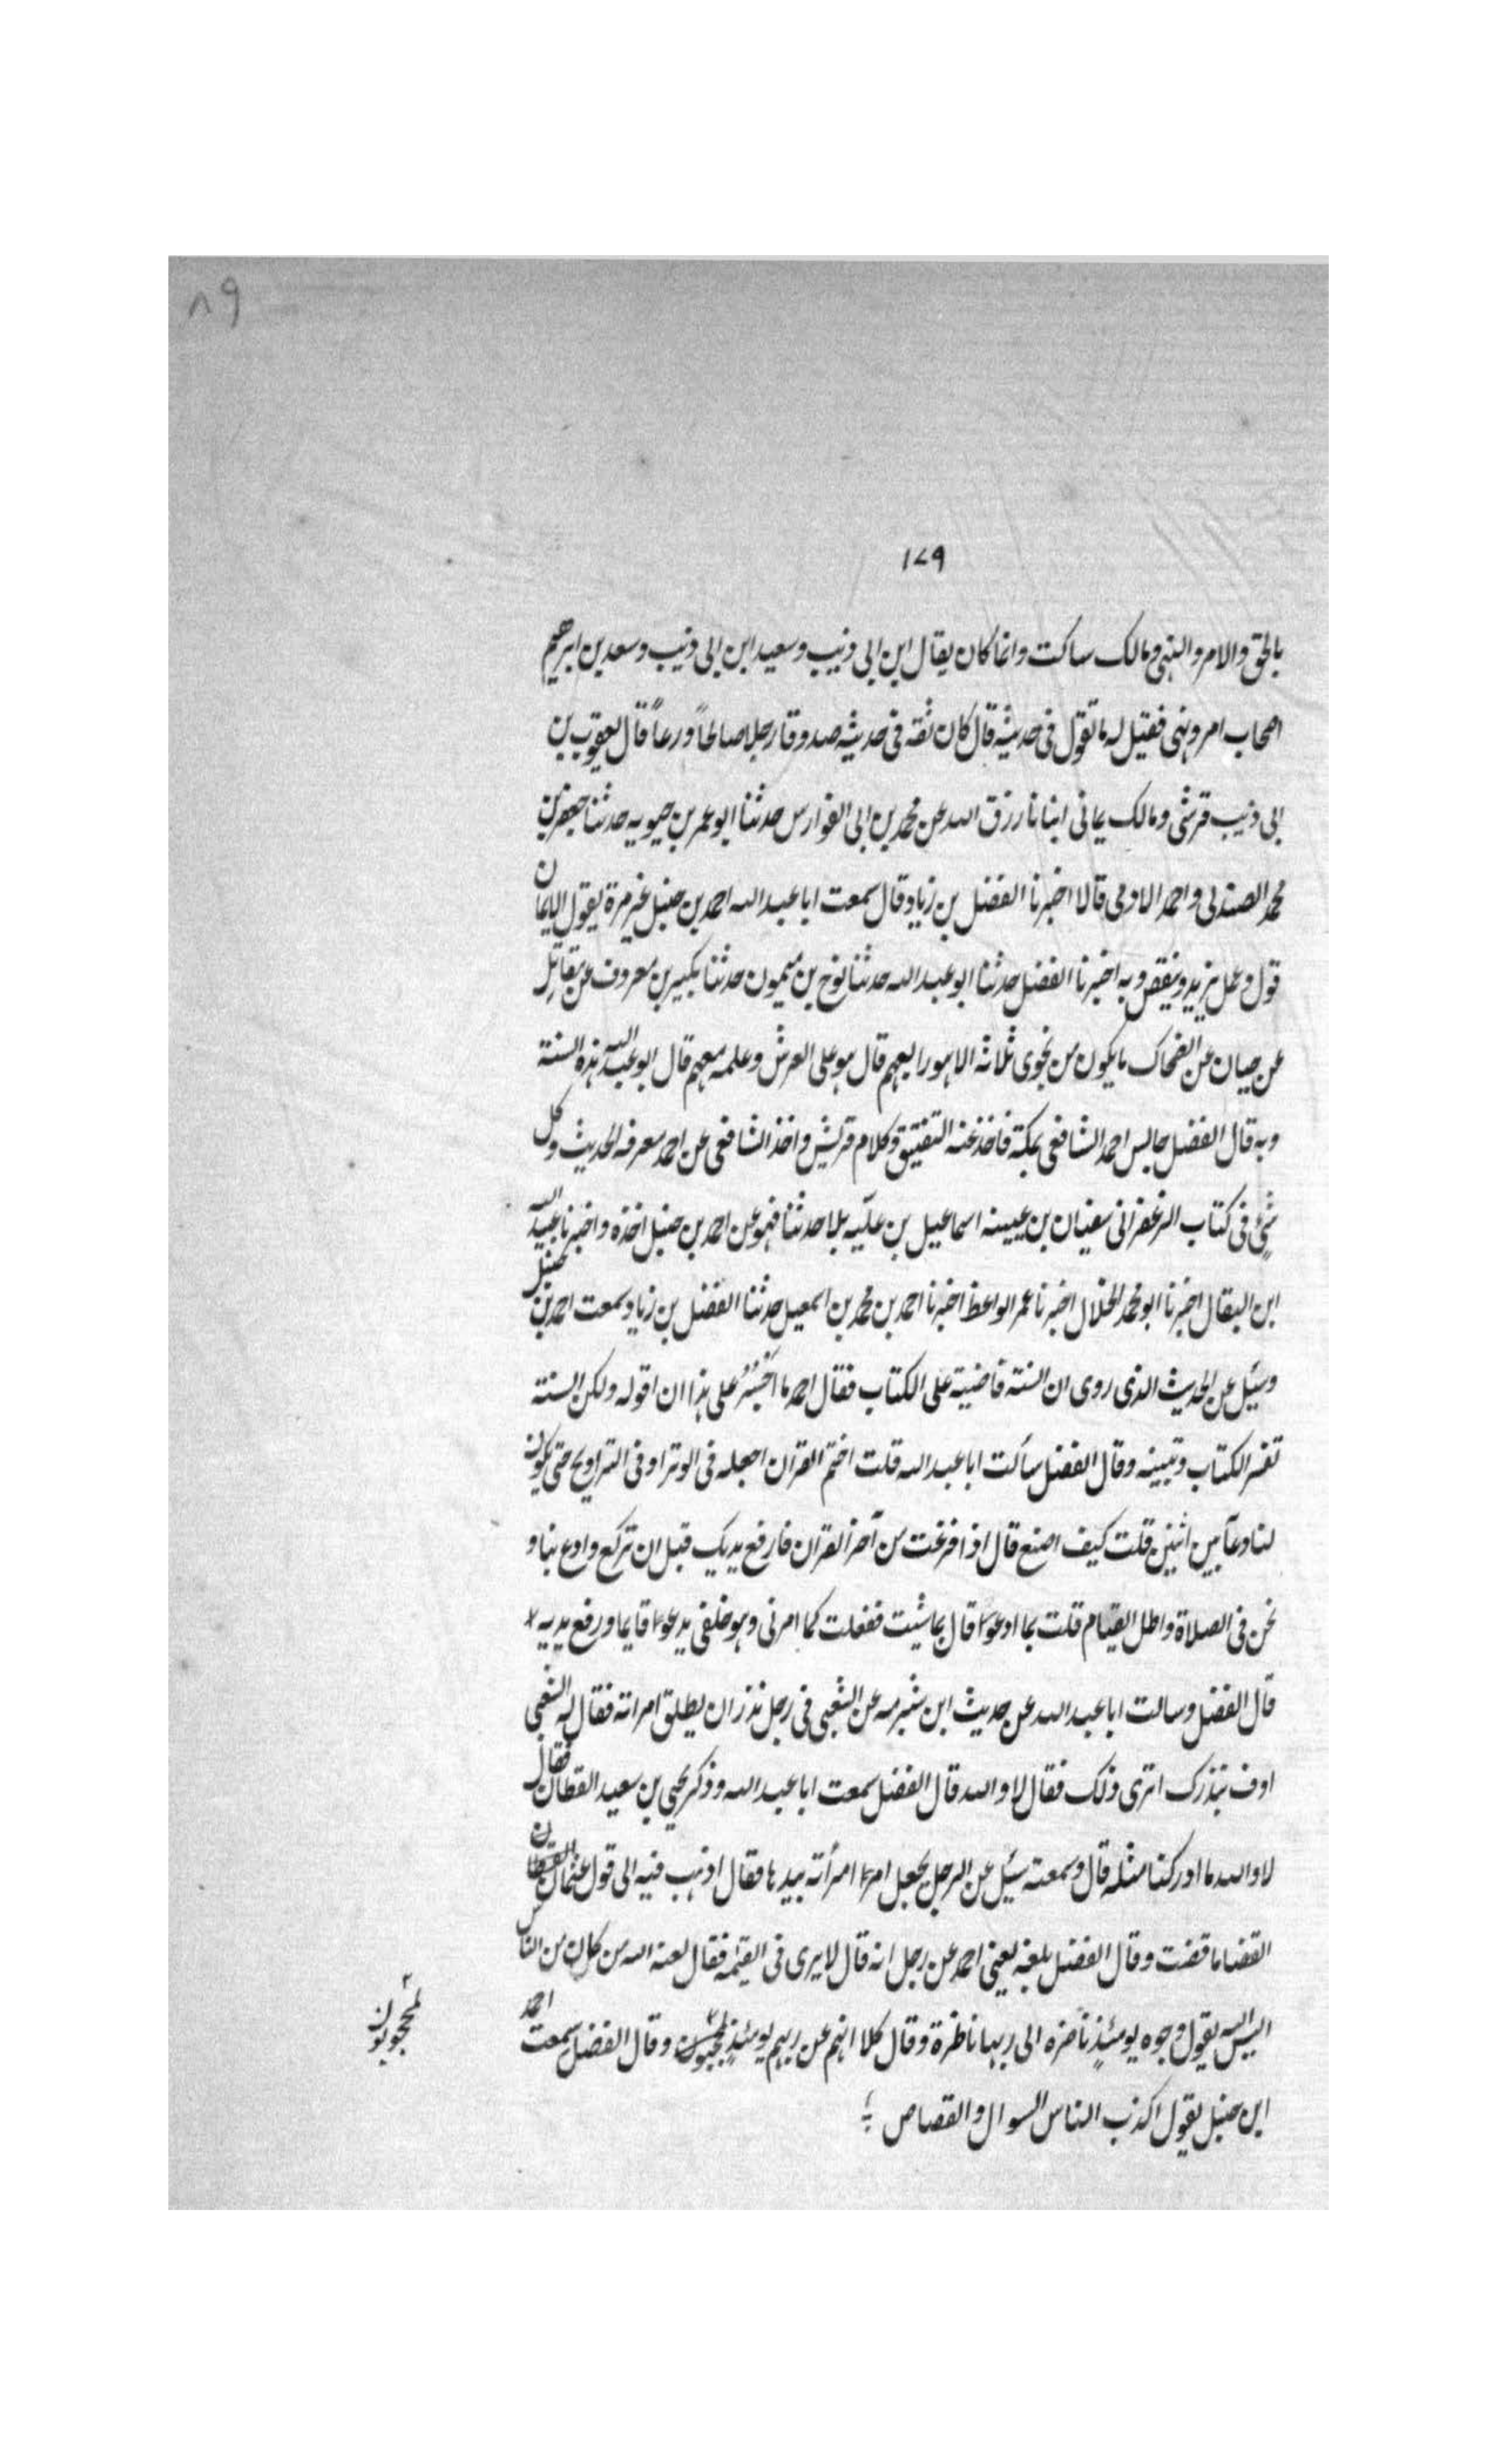 ٨٩
١٧٩
بالحق والامر والنهى ومالك ساكت وانما كان يقال ابن ابى ذئب وسعيد ابن ابى ذئب وسعد بن ابرهيم
اصحاب امر ونهى فقيل له ما تقول فى حديثه قال كان ثقه فى حديثه صدوقا رجلا صالحاً ورعاً قال يعقوب بن
ابى ذئب قرشى ومالك يمانى انبانا رزق الله عن محمد بن ابى الفوارس حدثنا ابو عمر بن حيويه حدثنا جعفر بن
محمد الصندلى واحمد الاومى قالا اخبرنا الفضل بن زياد قال سمعت ابا عبد الله احمد بن حنبل غير مرة يقول الايمان
قول وعمل يزيد وينقص وبه اخبرنا الفضل حدثنا ابو عبد الله حدثنا نوح بن ميمون حدثنا بكير بن معروف عن مقاتل
عن حيان عن الضحاك ما يكون من نجوى ثلاثة الا هو رابعهم قال هو على العرش وعلمه معهم قال ابو عبد الله هذه السنة
وبه قال الفضل جالس احمد الشافعى بمكة فاخذ عنه التفتيق وكلام قريش واخذ الشافعى عن احمد معرفه الحديث وكل
شئ فى كتاب الزعفرانى سفيان بن عيينه اسماعيل بن عليّه بلا حدثنا فهو عن احمد بن حنبل اخذه واخبرنا عبيد الله
ابن البقال اخبرنا ابو محمد الخلال اخبرنا عمر الواعظ اخبرنا احمد بن محمد بن اسمعيل حدثنا الفضل بن زياد سمعت احمد بن حنبل
وسئل عن الحديث الذى روى ان السنة قاضية على الكتاب فقال احمد ما اجسر على هذا ان اقوله ولكن السنة
تفسر الكتاب وتبينه وقال الفضل سألت ابا عبد الله قلت اختم القران اجعله فى الوتر او فى التراويح حتى يكون
لنا دعآ بين اثنين قلت كيف اصنع قال اذا فرغت من آخر القران فارفع يديك قبل ان تركع وادع بنا و
نحن فى الصلاة واطل القيام قلت بما ادعو قال بما شيت ففعلت كما امرنى وهو خلفى يدعو قايما ورفع يديه
قال الفضل وسالت ابا عبد الله عن حديث ابن شبرمه عن الشعبى فى رجل نذر ان يطلق امراته فقال له الشعبى
اوف بنذرك اترى ذلك فقال لا والله قال الفضل سمعت ابا عبد الله وذكر يحيى بن سعيد القطان فقال
لا والله ما ادركنا مثله قال وسمعته سئل عن الرجل يجعل امر امرأته بيدها فقال اذهب فيه الى قول عثمان
القضا ما قضت وقال الفضل بلغه يعنى احمد عن رجل انه قال لا يرى فى القيمه فقال لعنه الله من كان من الناس
اليس الله يقول وجوه يومئذٍ ناضره الى ربها ناظرة وقال كلا انهم عن ربهم يومئذٍ لمحجوبون وقال الفضل سمعت احمد
لمحجوبون
ابن حنبل يقول اكذب الناس السوال والقصاص